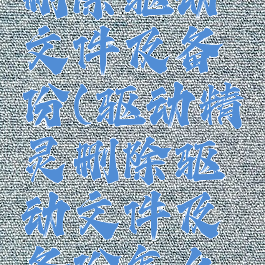 删除驱动
文件夜备
份(驱动精
灵删除驱
动文件夜
备份怎么